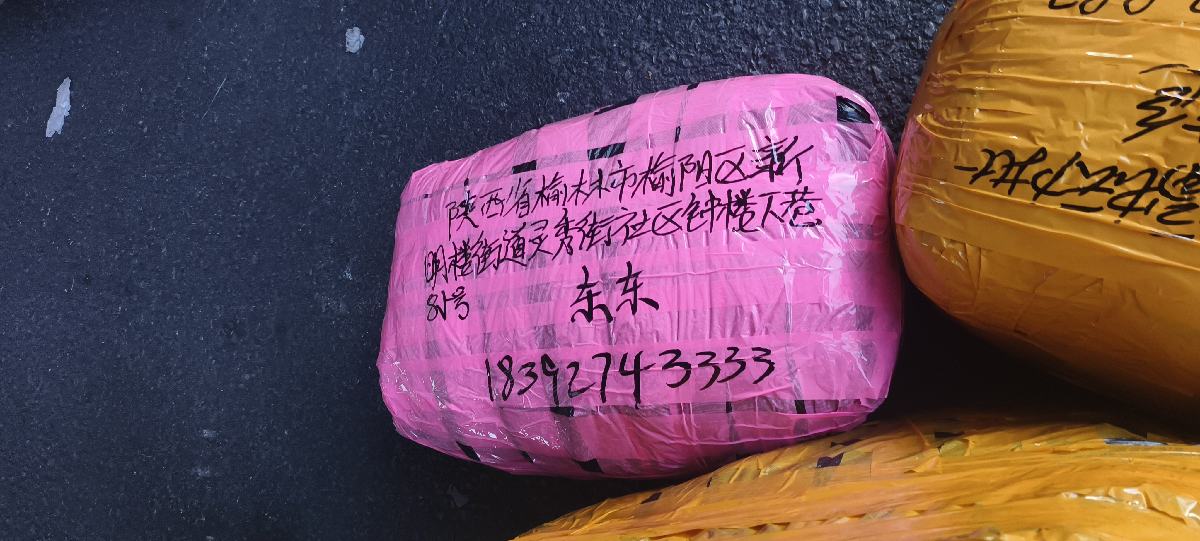 陕西省榆林市榆阳区新
明楼街道灵秀街社区钟楼下巷
81号
东东
18392743333